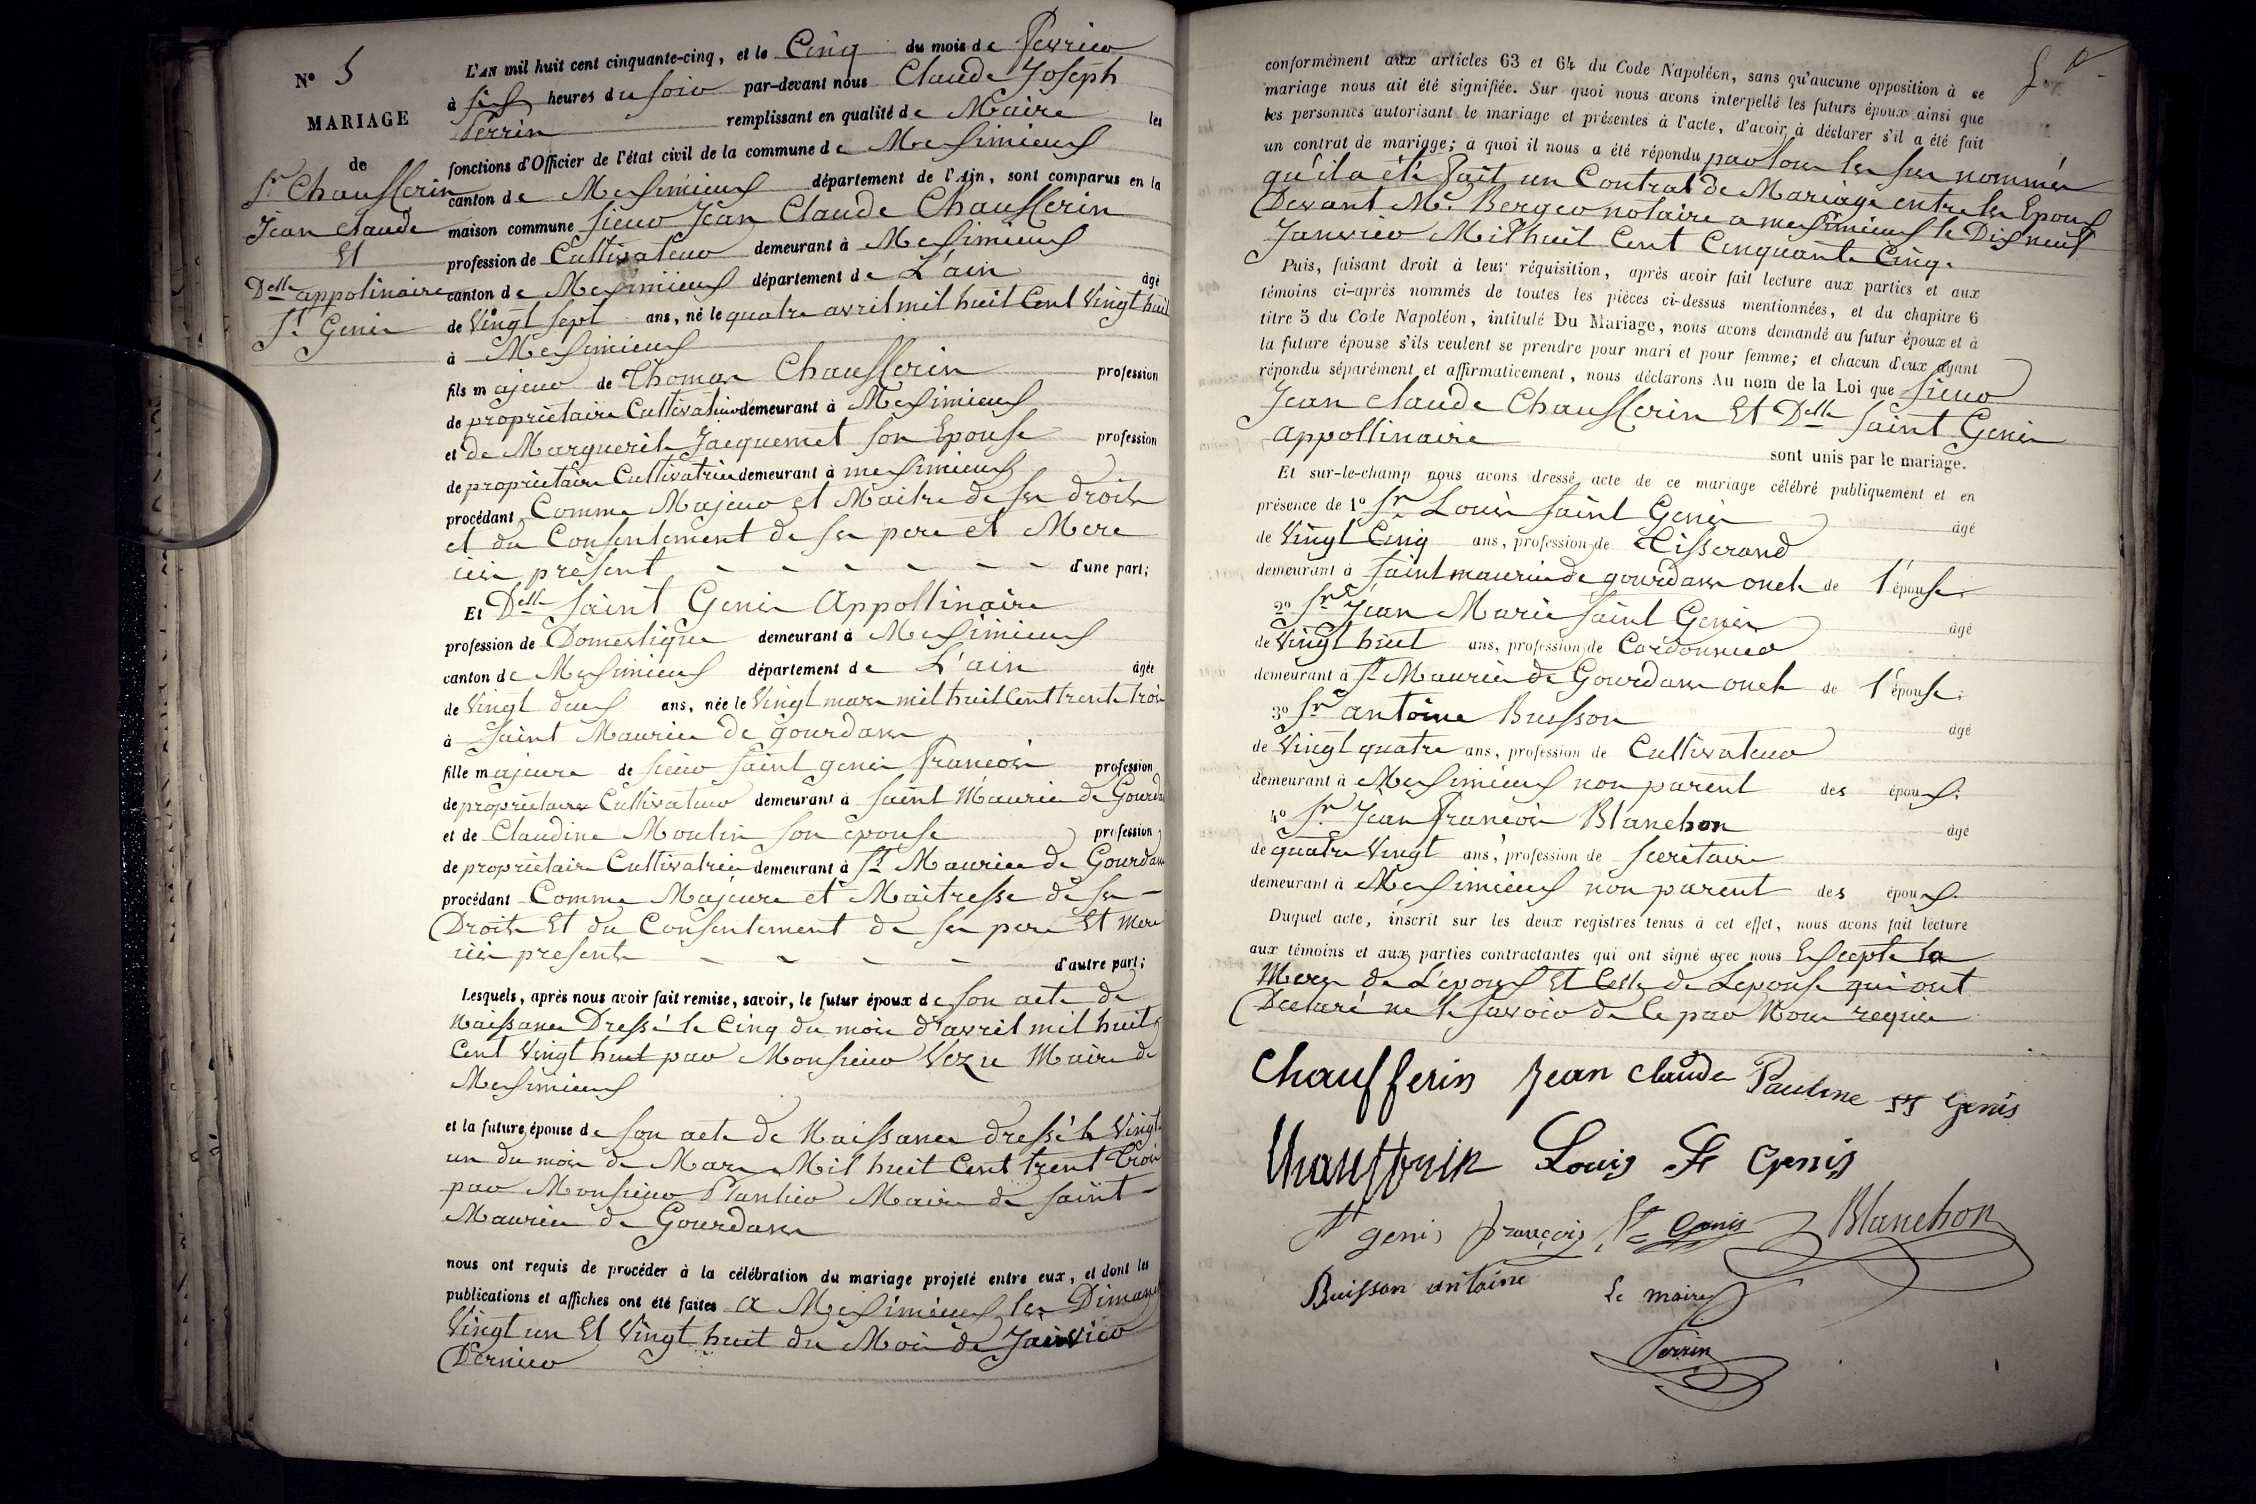 N° 5
MARIAGE
de
Sr Chausserin
Jean Claude
Et
Delle appolinaire
St Genis
L'AN mil huit cent cinquante-cinq, et le Cinq du mois de fevrier
à six heures du soir par-devant nous Claude Joseph
Perrin remplissant en qualité de Maire les
fonctions d'Officier de l'état civil de la commune de Meximieux
canton de Meximieux département de l'Ain, sont comparus en la
maison commune sieur Jean Claude Chausserin
profession de Cultivateur demeurant à Meximieux
canton de Meximieux département de L'ain âgé
de Vingt Sept ans, né le quatre avril mil huit Cent Vingt huit
à Meximieux
fils majeur de Thomas Chausserin profession
de propriétaire Cultivateur demeurant à Meximieux
et de Marguerite Jacquemet son Epouse profession
de propriétaire Cultivatrice demeurant à meximieux
procédant Comme Majeur et Maitre de ses droits
et du Consentement de ses pere et Mere
ici présent d'une part;
Et Delle Saint Genis Appollinaire
profession de Domestique demeurant à Meximieux
canton de Meximieux département de L'ain âgée
de Vingt deux ans, née le Vingt mars mil huit Cent trente trois
à Saint Maurice de gourdans
fille majeure de sieur Saint genis françois profession
de propriétaire Cultivateur demeurant à Saint Maurice de Gourdans
et de Claudine Moulin son épouse profession
de propriétaire Cultivatrice demeurant à St Maurice de Gourdans
procédant Comme Majeure et Maitresse de ses
Droits Et du Consentement de ses pere Et Mere
ici presents d'autre part;
Lesquels, après nous avoir fait remise, savoir, le futur époux de son acte de
Naissance Dressé le Cinq du mois d'avril mil huit
Cent Vingt huit par Monsieur Vezu Maire de
Meximieux
et la future épouse de son acte de Naissance dressé le Vingt
un du mois de Mars Mil huit Cent trent trois
par Monsieur Plantier Maire de Saint
Maurice de Gourdans
nous ont requis de procéder à la célébration du mariage projeté entre eux, et dont les
publications et affiches ont été faites a Meximieux les Dimanches
Vingt un Et Vingt huit du Mois de Janvier
Dernier
conformément aux articles 63 et 64 du Code Napoléon, sans qu'aucune opposition à ce
mariage nous ait été signifiée. Sur quoi nous avons interpellé les futurs époux ainsi que
les personnes autorisant le mariage et présentes à l'acte, d'avoir à déclarer s'il a été fait
un contrat de mariage; à quoi il nous a été répondu par tous les sus nommés
qu'il a été fait un Contrat de Mariage entre les Epoux
Devant Me Berger notaire a meximieux le Dix neuf
Janvier Mil huit Cent Cinquante Cinq.
Puis, faisant droit à leur réquisition, après avoir fait lecture aux parties et aux
témoins ci-après nommés de toutes les pièces ci-dessus mentionnées, et du chapitre 6
titre 5 du Code Napoléon, intitulé Du Mariage, nous avons demandé au futur époux et à
la future épouse s'ils veulent se prendre pour mari et pour femme; et chacun d'eux ayant
répondu séparément et affirmativement, nous déclarons Au nom de la Loi que Sieur
Jean claude Chausserin Et Delle Saint Genis
appollinaire
sont unis par le mariage.
Et sur-le-champ nous avons dressé acte de ce mariage célébré publiquement et en
présence de 1° Sr Louis Saint Genis âgé
de Vingt Cinq ans, profession de Tisserand
demeurant à Saint maurice de gourdans oncle de l'épouse;
2° Sr Jean Marie Saint Genis âgé
de Vingt huit ans, profession de Cordonnier
demeurant à St Maurice de Gourdans oncle de l'épouse;
3° Sr antoine Buisson âgé
de Vingt quatre ans, profession de Cultivateur
demeurant à Meximieux non parent des époux;
4° Sr Jean françois Blanchon âgé
de quatre Vingt ans, profession de Secretaire
demeurant à Meximieux non parent des époux.
Duquel acte, inscrit sur les deux registres tenus à cet effet, nous avons fait lecture
aux témoins et aux parties contractantes qui ont signé avec nous Excepté la
Mere de L'epoux Et Celle de Lepouse qui ont
Declaré ne le savoir de Ce par Nous requis
Chausserin Jean claude Pauline St Genis
Chausserin Louis St Genis
St genis françois St Genis Blanchon
Buisson antoine Le maire
Perrin